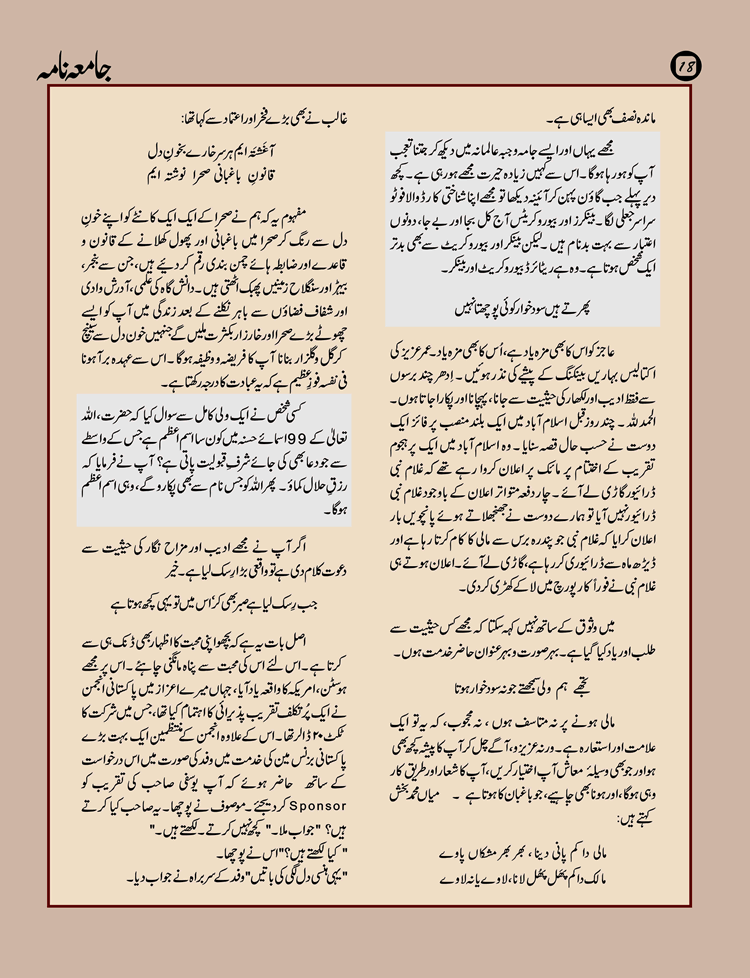 جامعہ نامہ
18
ماندہ نصف بھی ایسا ہی ہے۔
مجھے یہاں اور ایسے جامہ وجبہ عالمانہ میں دیکھ کر جتنا تعجب
آپ کو ہو رہا ہوگا۔ اس سے کہیں زیادہ حیرت مجھے ہو رہی ہے۔ کچھ
دیر پہلے جب گاؤن پہن کر آئینہ دیکھا تو مجھے اپنا شناختی کارڈ والا فوٹو
سراسر جعلی لگا۔ بینکرز اور بیوروکریٹس آج کل بجا اور بے جا، دونوں
اعتبار سے بہت بدنام ہیں۔ لیکن بینکر اور بیوروکریٹ سے بھی بدتر
ایک شخص ہوتا ہے۔ وہ ہے ریٹائرڈ بیوروکریٹ اور بینکر۔
پھرتے ہیں سود خوار کوئی پوچھتا نہیں
عاجز کو اس کا بھی مزہ یاد ہے، اُس کا بھی مزہ یاد۔ عمر عزیز کی
اکتالیس بہاریں بینکنگ کے پیشے کی نذر ہوئیں۔ اِدھر چند برسوں
سے فقط ادیب اور لکھاری کی حیثیت سے جانا، پہچانا اور پکارا جاتا ہوں۔
الحمدللہ۔ چند روز قبل اسلام آباد میں ایک بلند منصب پر فائز ایک
دوست نے حسب حال قصہ سنایا۔ وہ اسلام آباد میں ایک پر ہجوم
تقریب کے اختتام پر مائک پر اعلان کروا رہے تھے کہ غلام نبی
ڈرائیور گاڑی لے آئے۔ چار دفعہ متواتر اعلان کے باوجود غلام نبی
ڈرائیور نہیں آیا تو ہمارے دوست نے جھنجھلاتے ہوئے پانچویں بار
اعلان کرایا کہ غلام نبی جو پندرہ برس سے مالی کا کام کرتا رہا ہے اور
ڈیڑھ ماہ سے ڈرائیوری کر رہا ہے، گاڑی لے آئے۔ اعلان ہوتے ہی
غلام نبی نے فوراً کار پورچ میں لا کے کھڑی کر دی۔
میں وثوق کے ساتھ نہیں کہہ سکتا کہ مجھے کس حیثیت سے
طلب اور یاد کیا گیا ہے۔ بہر صورت و بہر عنوان حاضر خدمت ہوں۔
تجھے ہم ولی سمجھتے جو نہ سود خوار ہوتا
مالی ہونے پر نہ متاسف ہوں، نہ محجوب، کہ یہ تو ایک
علامت اور استعارہ ہے۔ ورنہ عزیزو، آگے چل کر آپ کا پیشہ کچھ بھی
ہو اور جو بھی وسیلۂ معاش آپ اختیار کریں، آپ کا شعار اور طریق کار
وہی ہوگا، اور ہونا بھی چاہیے، جو باغبان کا ہوتا ہے۔ میاں محمد بخش
کہتے ہیں:
مالی دا کم پانی دینا، بھر بھر مشکاں پاوے
مالک دا کم پھل پھل لانا، لاوے یا نہ لاوے
غالب نے بھی بڑے فخر اور اعتماد سے کہا تھا:
آغشتہ ایم ہر سر خارے بخونِ دل
قانونِ باغبانی صحرا نوشتہ ایم
مفہوم یہ کہ ہم نے صحرا کے ایک ایک کانٹے کو اپنے خونِ
دل سے رنگ کر صحرا میں باغبانی اور پھول کھلانے کے قانون و
قاعدے اور ضابطہ ہائے چمن بندی رقم کر دیئے ہیں، جن سے بنجر،
بیہڑ اور سنگلاخ زمینیں پھبک اٹھتی ہیں۔ دانش گاہ کی علمی، آدرش وادی
اور شفاف فضاؤں سے باہر نکلنے کے بعد زندگی میں آپ کو ایسے
چھوٹے بڑے صحرا اور خار زار بکثرت ملیں گے جنہیں خون دل سے سینچ
کر گل و گلزار بنانا آپ کا فریضہ و وظیفہ ہوگا۔ اس سے عہدہ برآ ہونا
فی نفسہ فوزِ عظیم ہے کہ یہ عبادت کا درجہ رکھتا ہے۔
کسی شخص نے ایک ولی کامل سے سوال کیا کہ حضرت، اللہ
تعالیٰ کے 99 اسمائے حسنہ میں کون سا اسم اعظم ہے جس کے واسطے
سے جو دعا بھی کی جائے شرفِ قبولیت پاتی ہے؟ آپ نے فرمایا کہ
رزقِ حلال کماؤ۔ پھر اللہ کو جس نام سے بھی پکارو گے، وہی اسم اعظم
ہوگا۔
اگر آپ نے مجھے ادیب اور مزاح نگار کی حیثیت سے
دعوت کلام دی ہے تو واقعی بڑا رسک لیا ہے۔ خیر
جب رسک لیا ہے صبر بھی کر اُس میں تو یہی کچھ ہوتا ہے
اصل بات یہ ہے کہ بچھو اپنی محبت کا اظہار بھی ڈنک ہی سے
کرتا ہے۔ اس لئے اس کی محبت سے پناہ مانگنی چاہئے۔ اس پر مجھے
ہوسٹن، امریکہ کا واقعہ یاد آیا، جہاں میرے اعزاز میں پاکستانی انجمن
نے ایک پُر تکلف تقریب پذیرائی کا اہتمام کیا تھا، جس میں شرکت کا
ٹکٹ ۲۰ ڈالر تھا۔ اس کے علاوہ انجمن کے منتظمین ایک بہت بڑے
پاکستانی بزنس مین کی خدمت میں وفد کی صورت میں اس درخواست
کے ساتھ حاضر ہوئے کہ آپ یوسفی صاحب کی تقریب کو
Sponsor کر دیجئے۔ موصوف نے پوچھا۔ یہ صاحب کیا کرتے
ہیں؟ "جواب ملا۔" کچھ نہیں کرتے۔ لکھتے ہیں۔"
"کیا لکھتے ہیں؟" اس نے پوچھا۔
"یہی ہنسی دل لگی کی باتیں" وفد کے سربراہ نے جواب دیا۔